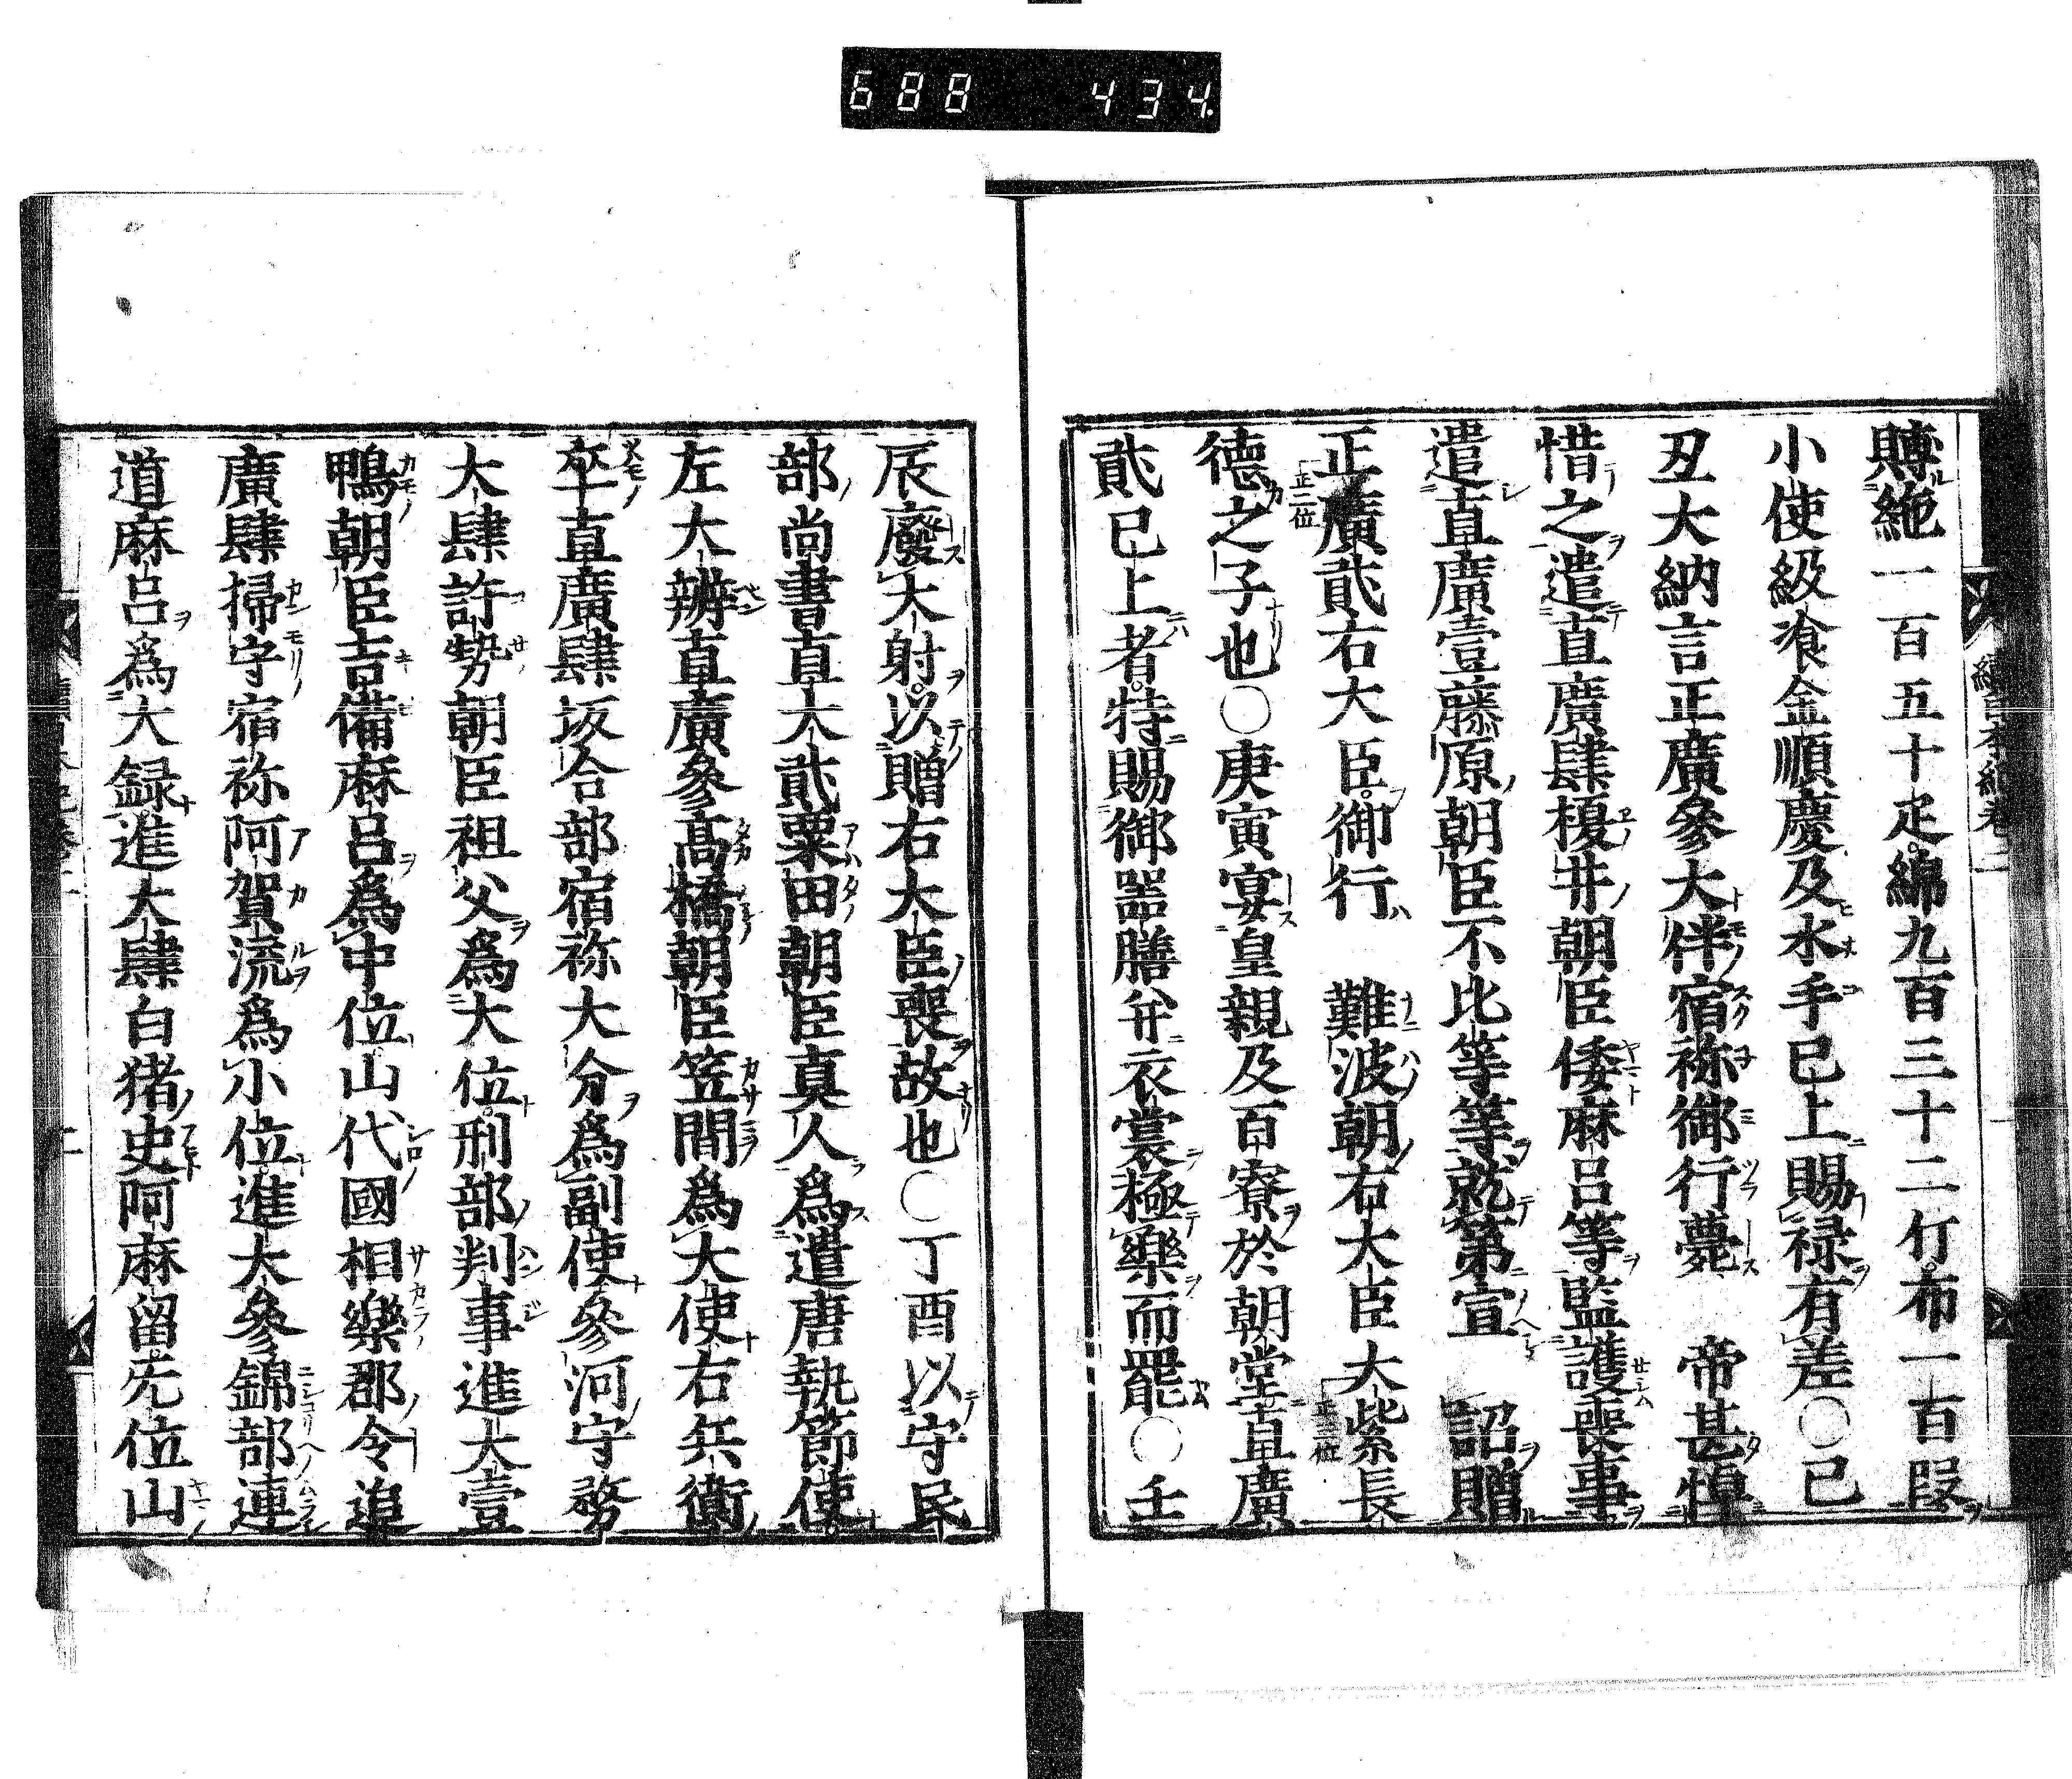 688 434
賻絁一百五十疋綿九百三十二斤布一百段
小使級飡金順慶及水手已上賜禄有差〇己
丑大納言正廣參大伴宿祢御行薨 帝甚悼
惜之遣直廣肆榎井朝臣倭麻呂等監護喪事
遣直廣壹藤原朝臣不比等等就第宣 詔贈
正廣貮右大臣御行 難波朝右大臣大紫長
德之子也〇庚寅宴皇親及百寮於朝堂直廣
貮已上者特賜御噐膳并衣裳極樂而罷〇壬
辰廢大射以贈右大臣喪故也〇丁酉以守民
部尚書直大貮粟田朝臣真人爲遣唐執節使
左大辨直廣參高橋朝臣笠間爲大使右兵衛
率直廣肆坂合部宿祢大分爲副使參河守務
大肆許勢朝臣祖父爲大位刑部判事進大壹
鴨朝臣吉備麻呂爲中位山代國相樂郡令追
廣肆掃守宿祢阿賀流爲小位進大參錦部連
道麻呂爲大録進大肆白猪史阿麻留无位山